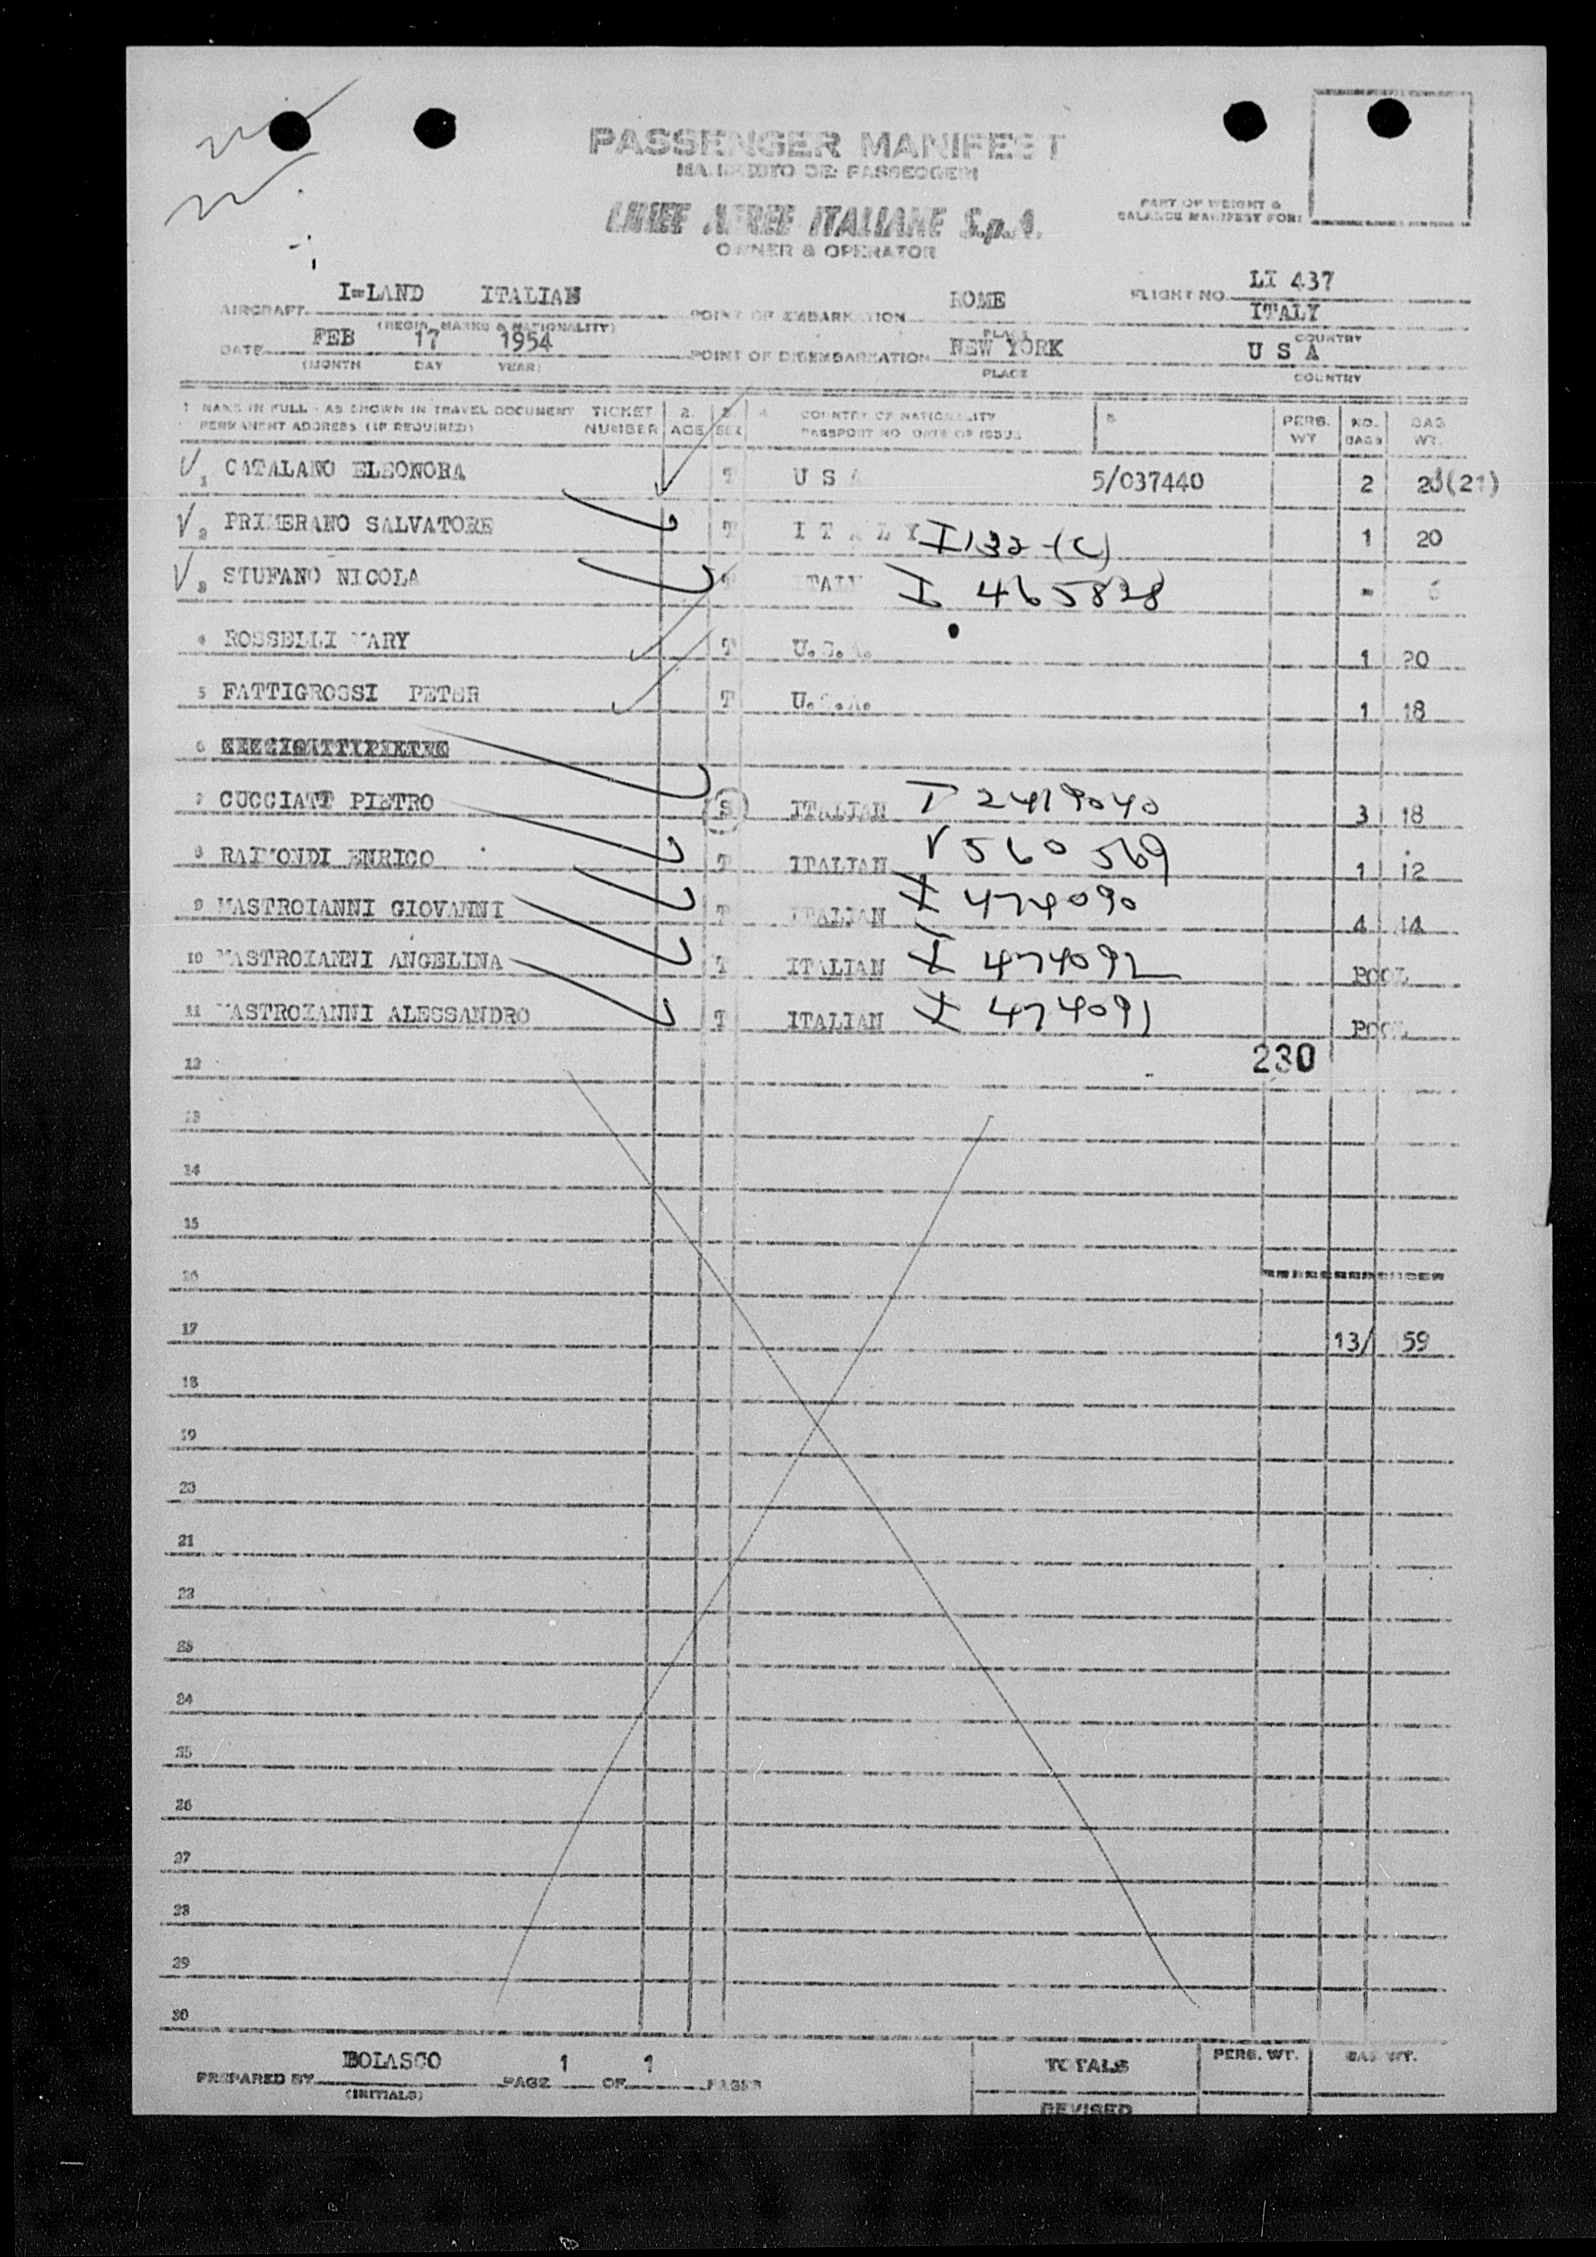 PASSENGER MANIFEST
MANIFESTO DEI PASSEGGERI
LINEE AEREE ITALIANE S.p.A.
OWNER & OPERATOR
PART OF WEIGHT &
BALANCE MANIFEST FOR:
AIRCRAFT I-LAND ITALIAN POINT OF EMBARKATION ROME FLIGHT NO. LI 437
(REGIS. MARKS & NATIONALITY) PLACE ITALY COUNTRY
DATE FEB 17 1954 POINT OF DISEMBARKATION NEW YORK U S A
(MONTH DAY YEAR) PLACE COUNTRY
1 NAME IN FULL - AS SHOWN IN TRAVEL DOCUMENT TICKET 2. 3. 4. COUNTRY OF NATIONALITY 5. PERS. NO. BAG
PERMANENT ADDRESS (IF REQUIRED) NUMBER AGE SEX PASSPORT NO. DATE OF ISSUE WT BAGS WT.
1 CATALANO ELEONORA T U S A 5/037440 2 (21)
2 PRIMERANO SALVATORE T I T A L Y I132-(C) 1 20
3 STUFANO NICOLA T ITALY I 465828 -
4 ROSSELLI MARY T U.S.A. 1 20
5 FATTIGROSSI PETER T U.S.A. 1 18
6
7 CUCCIATI PIETRO S ITALIAN I 2419040 3 18
8 RAIMONDI ENRICO T ITALIAN V 560 569 1 12
9 MASTROIANNI GIOVANNI T ITALIAN I 474090 4 44
10 MASTROIANNI ANGELINA T ITALIAN I 474092 POOL
11 MASTROIANNI ALESSANDRO T ITALIAN I 474091 POOL
12 230
13
14
15
16
17 13/ 159
18
19
20
21
22
23
24
25
26
27
28
29
30
PREPARED BY BOLASCO PAGE 1 OF 1 PAGES TOTALS PERS. WT. BAG WT.
(INITIALS)
REVISED